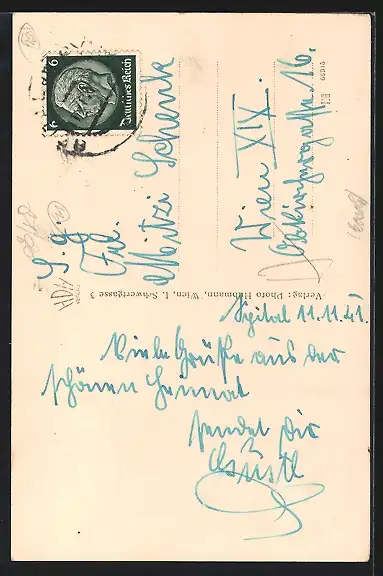 Spital 11.11.41.
Viele Grüße aus der
schönen Heimat
sendet Dir
Gustl
S. g.
Frl.
Mitzi Schenk
Wien XIX.
16.
Verlag: Photo Hübmann, Wien, I. Schwertgasse 3
Deutsches Reich
6
6